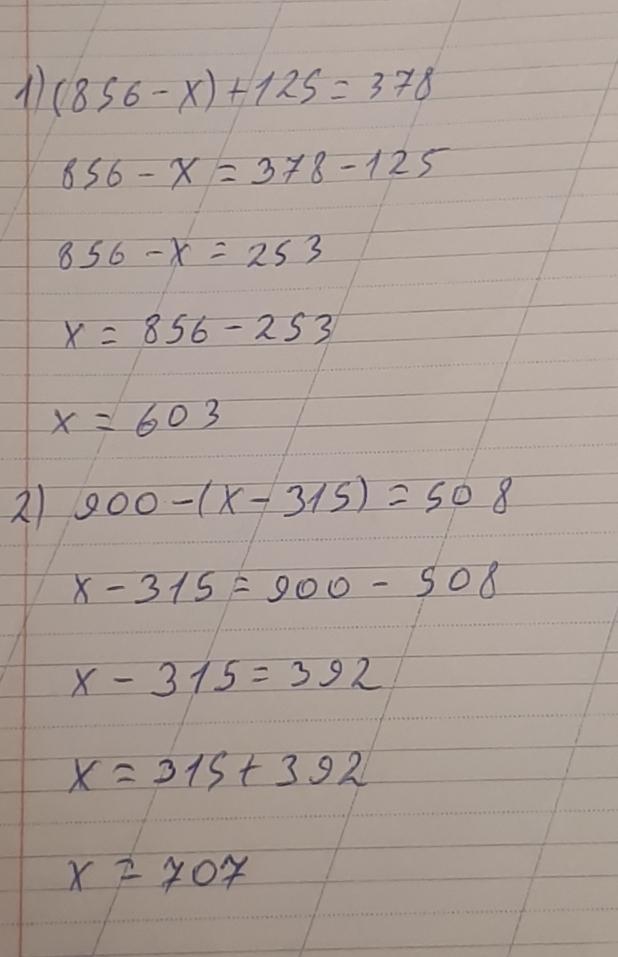 1) (856 - x) + 125 = 378
856 - x = 378 - 125
856 - x = 253
x = 856 - 253
x = 603
2) 900 - (x - 315) = 508
x - 315 = 900 - 508
x - 315 = 392
x = 315 + 392
x = 707